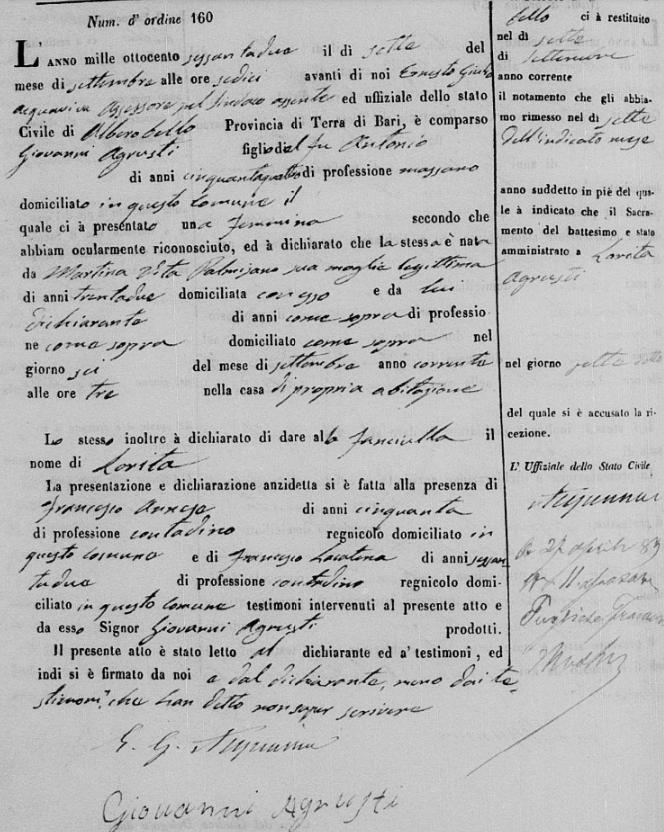 Num. d'ordine 160
L'ANNO mille ottocento sessantadue il di sette del
mese di settembre alle ore sedici avanti di noi Ernesto Giulio
Acquaviva Assessore pel Sindaco assente ed uffiziale dello stato
Civile di Alberobello Provincia di Terra di Bari, è comparso
Giovanni Agrusti figlio del fu Antonio
di anni cinquanta di professione massaro
domiciliato in questo comune il
quale ci à presentato una femmina secondo che
abbiam ocularmente riconosciuto, ed à dichiarato che la stessa è nata
da Martina Vita Palmisano sua moglie legittima
di anni trentadue domiciliata con esso e da lui
dichiarante di anni come sopra di professio
ne come sopra domiciliato come sopra nel
giorno sei del mese di settembre anno corrente
alle ore tre nella casa di propria abitazione
Lo stesso inoltre à dichiarato di dare alla fanciulla il
nome di Lorita
La presentazione e dichiarazione anzidetta si è fatta alla presenza di
Francesco di anni cinquanta
di professione contadino regnicolo domiciliato in
questo comune e di Francesco Laoatena di anni sessan
tadue di professione contadino regnicolo domi-
ciliato in questo comune testimoni intervenuti al presente atto e
da esso Signor Giovanni Agrusti prodotti.
Il presente atto è stato letto al dichiarante ed a' testimoni, ed
indi si è firmato da noi e dal dichiarante, meno dai te
stimoni, che han detto non saper scrivere
E. G. Acquaviva
Giovanni Agrusti
bello ci à restituito
nel dì sette
di Settembre
anno corrente
il notamento che gli abbia-
mo rimesso nel dì sette
dell'indicato mese
anno suddetto in piè del qua-
le à indicato che il Sacra-
mento del battesimo e stato
amministrato a Lorita
Agrusti
nel giorno sette detto
del quale si è accusato la ri-
cezione.
L' Uffiziale dello Stato Civile
Acquaviva
27 aprile 89